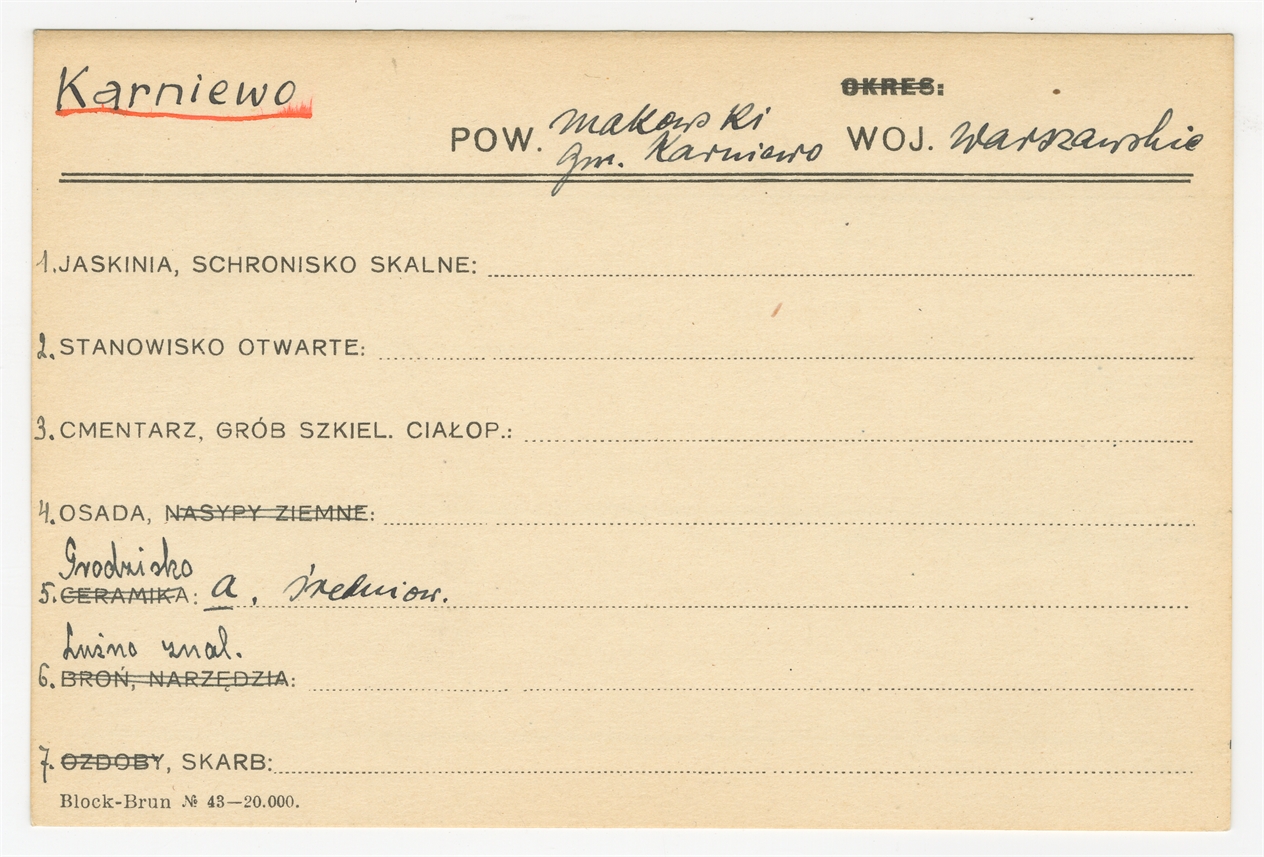 Karniewo
OKRES:
POW. makowski WOJ. Warszawskie
gm. Karniewo
1. JASKINIA, SCHRONISKO SKALNE:
2. STANOWISKO OTWARTE:
3. CMENTARZ, GRÓB SZKIEL. CIAŁOP.:
4. OSADA, NASYPY ZIEMNE:
Grodzisko
5. CERAMIKA: a. średniow.
Luźno znal.
6. BROŃ, NARZĘDZIA:
7. OZDOBY, SKARB:
Block-Brun № 43—20.000.